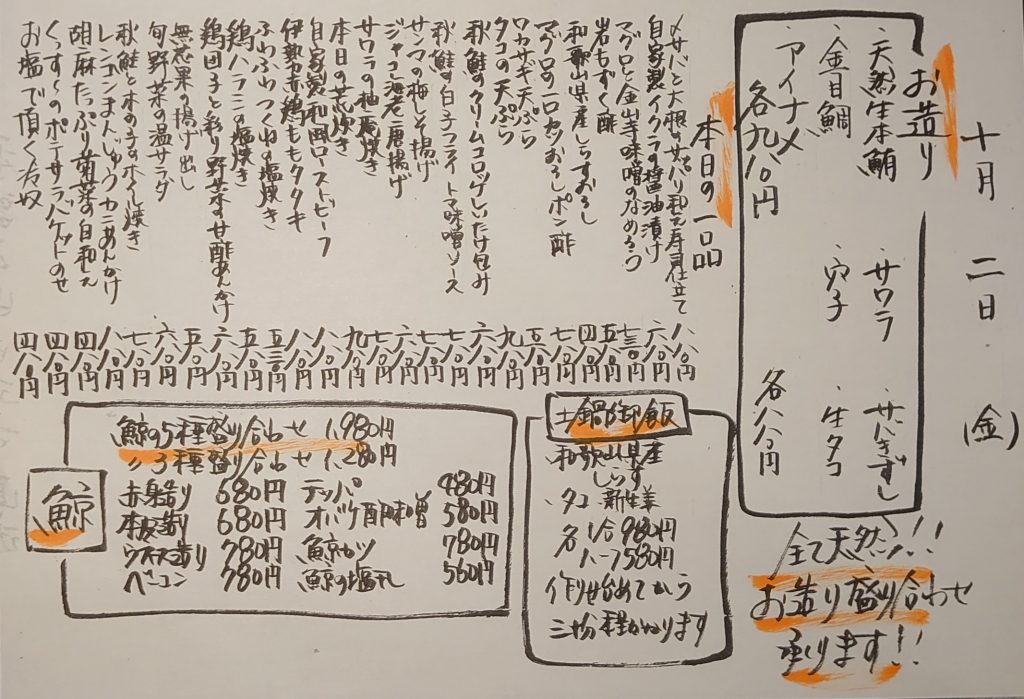 十月 二日 (金)
お造り
天然生本鮪 サワラ サバきずし
金目鯛 穴子 生タコ
アイナメ
各九八〇円 各八八〇円
全て天然!!
お造り盛り合わせ
承ります!!
本日の一品
〆サバと大根のサッパリ和え寿司仕立て 八八〇円
自家製イクラの醤油漬け 六八〇円
マグロと金山寺味噌のなめろう 七三〇円
岩もずく酢 五八〇円
和歌山県産しらすおろし 四八〇円
マグロの一口カツおろしポン酢 七八〇円
ワカサギ天ぷら 五八〇円
タコの天ぷら 九八〇円
秋鮭のクリームコロッケしいたけ包み 六八〇円
秋鮭の白子フライトマト味噌ソース 七八〇円
サンマの梅しそ揚げ 七八〇円
ジャコ海老の唐揚げ 六八〇円
サワラの柚庵焼き 七八〇円
本日の荒炊き 九八〇円
自家製和風ローストビーフ 八八〇円
伊勢赤鶏ももタタキ 八八〇円
ふわふわつくねの塩焼き 五三〇円
鶏ハラミの塩焼き 五八〇円
鶏団子と彩り野菜の甘酢あんかけ 六八〇円
無花果の揚げ出し 五八〇円
旬野菜の温サラダ 六八〇円
秋鮭と木の子のホイル焼き 七八〇円
レンコンまんじゅうカニあんかけ 八八〇円
胡麻たっぷり菊菜の白和え 四八〇円
くっすんのポテサラバケットのせ 四八〇円
お塩で頂く冷奴 四八〇円
土鍋御飯
和歌山県産
しらす
タコ 新生姜
各1合980円
ハーフ580円
作り始めてから
三十分程かかります
鯨
鯨の5種盛り合わせ 1,980円
〃3種盛り合わせ 1,280円
赤身造り 680円 テッパ 480円
本皮造り 680円 オバケ酢味噌 580円
ウネス造り 780円 鯨カツ 780円
ベーコン 780円 鯨の塩タレ 560円